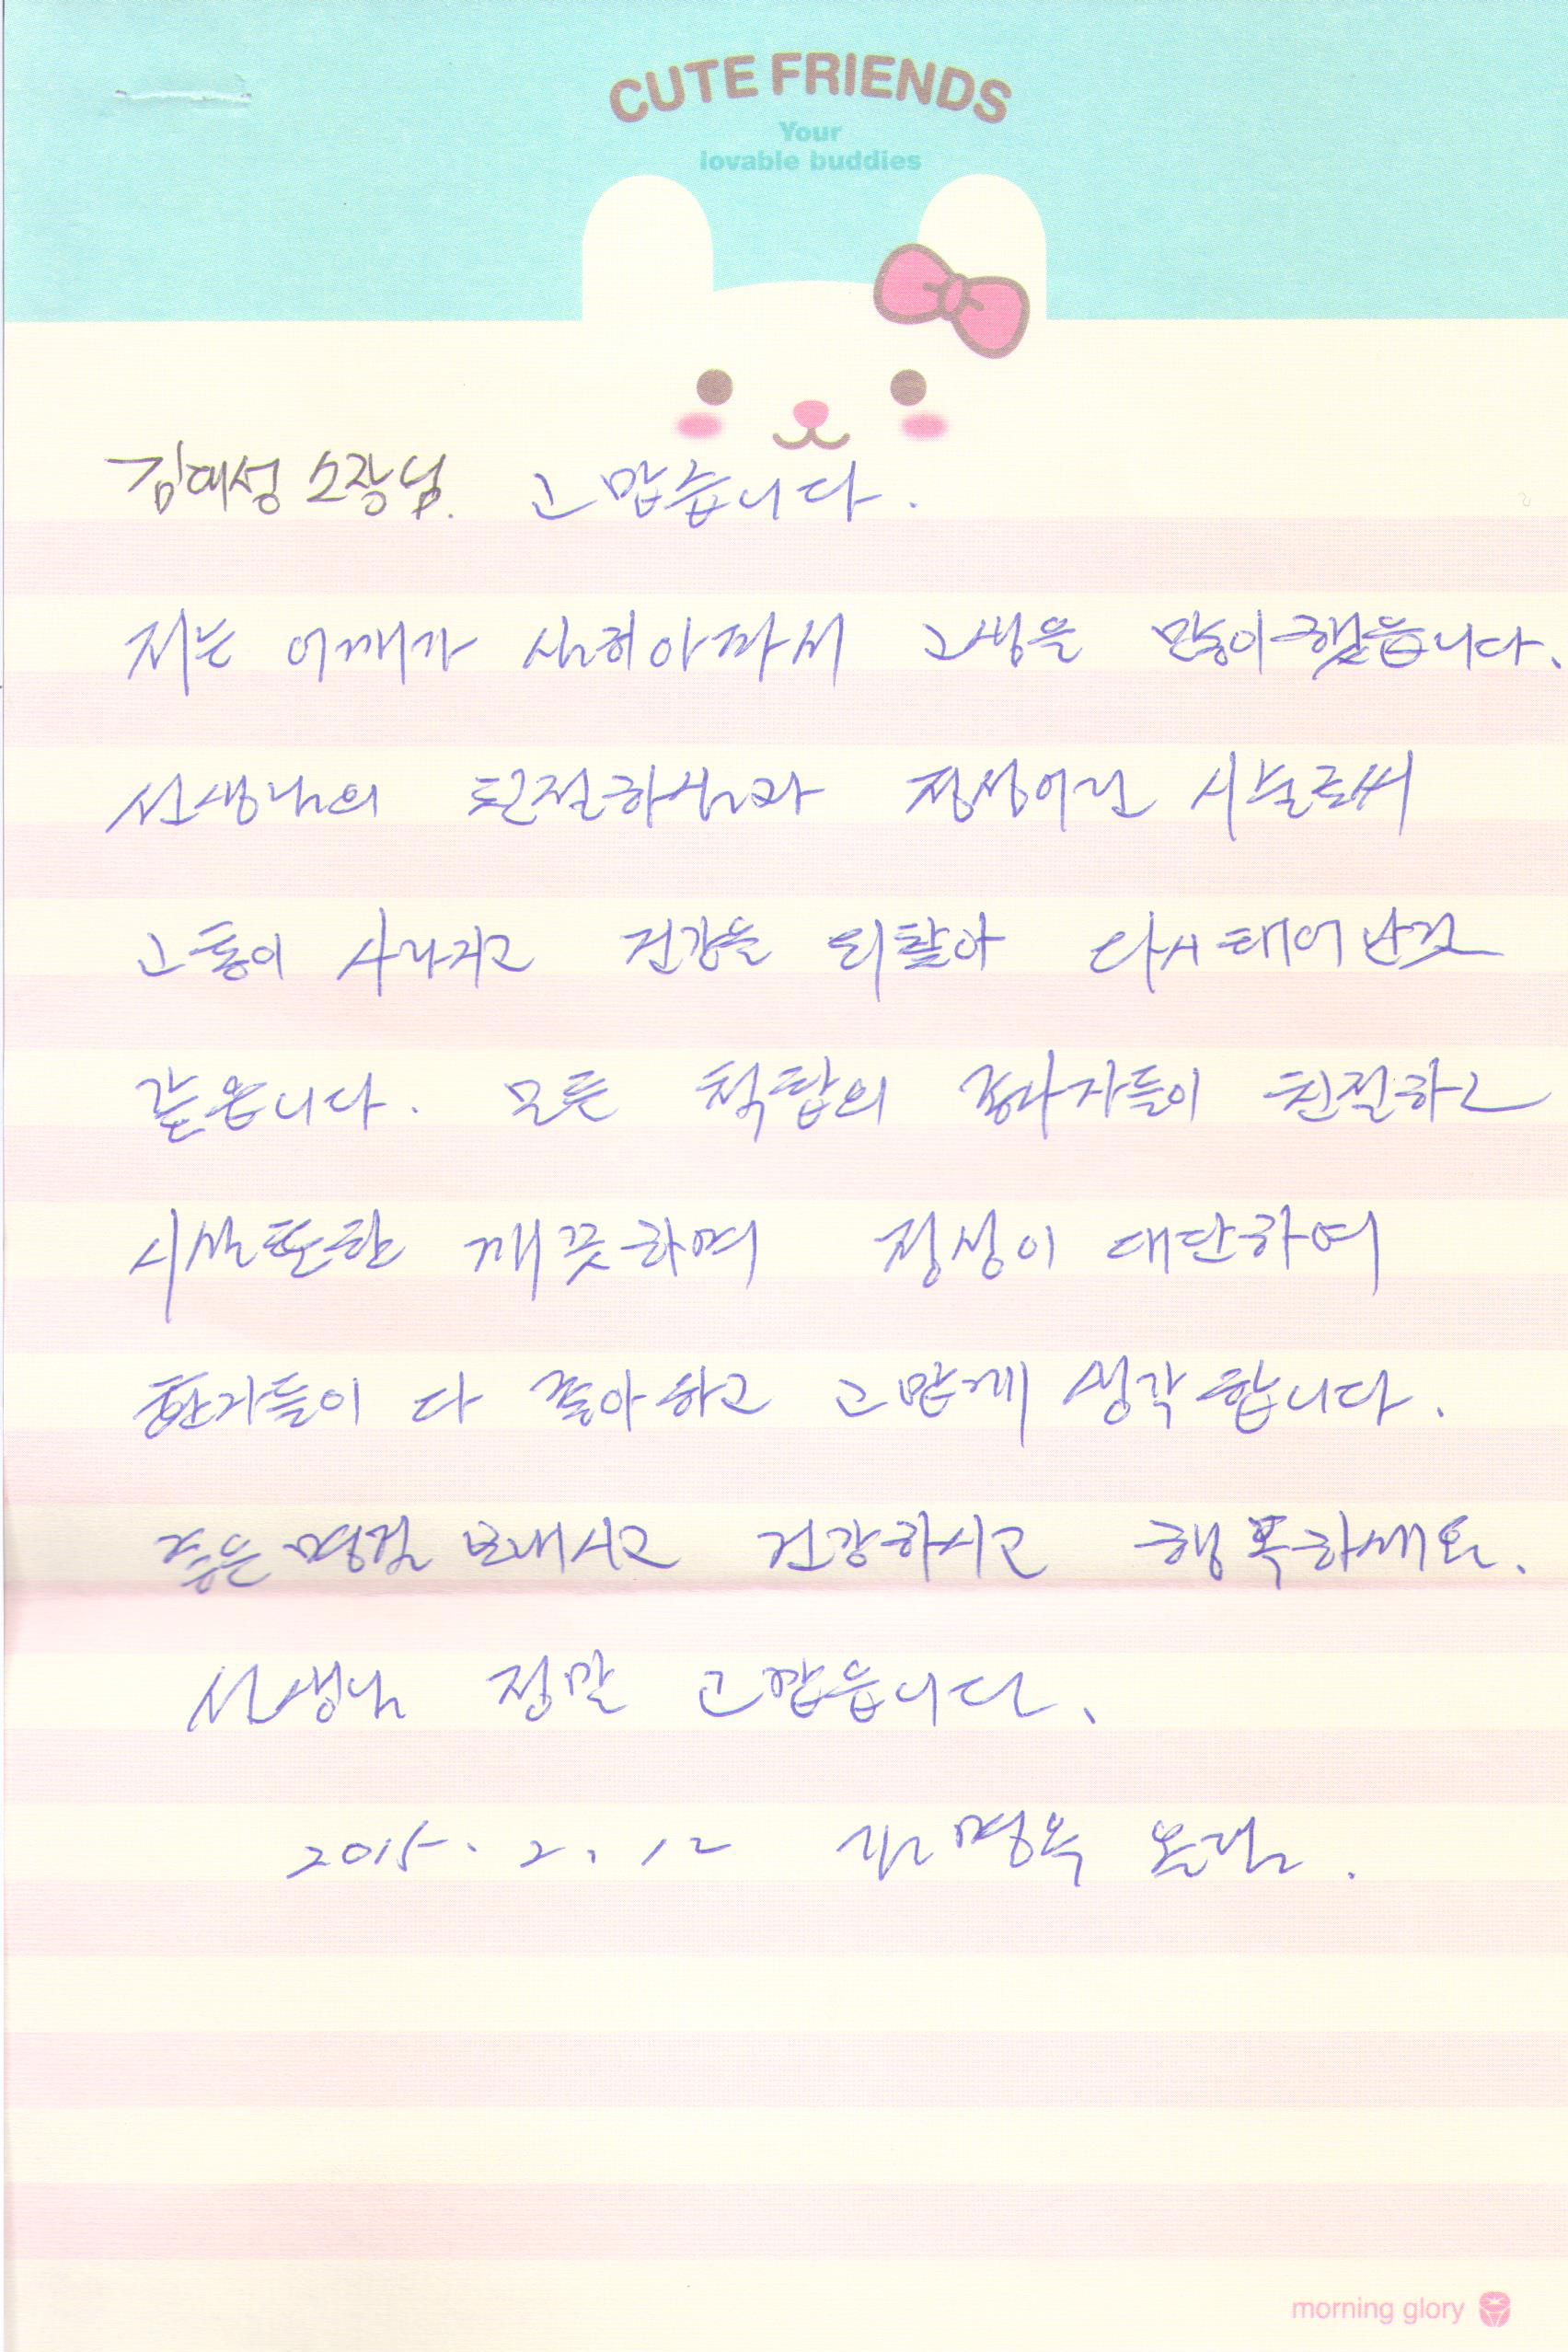 CUTE FRIENDS
Your
lovable buddies
김대성 소장님. 고맙습니다.
저는 어깨가 심히 아파서 고생을 많이 했읍니다.
선생님의 친절하심과 정성어린 시술로써
고통이 사라지고 건강을 되찰아 다시 태어난것
같읍니다. 모든 척탑의 종사자들이 친절하고
시설 또한 깨끗하며 정성이 대단하여
환자들이 다 좋아하고 고맙게 생각합니다.
좋은 명절 보내시고 건강하시고 행복하세요.
선생님 정말 고맙읍니다.
2015. 2. 12 명옥 올림.
morning glory